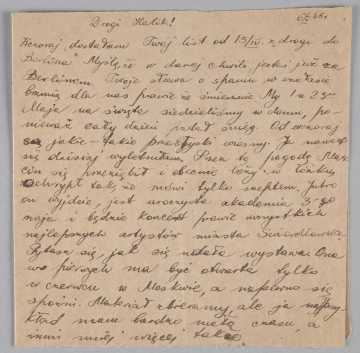 Drogi Halik!
Wczoraj dostałam Twój list od 15/IV „z drogi do
Berlina” Myślę, że w danej chwili jesteś już za
Berlinem. Twoje słowa o spaniu w szałasie
brzmią dla nas prawie że śmiesznie. My 1 a 2go
Maja na święta siedzieliśmy w domu, po-
nieważ cały dzień padał śnieg. Od wczoraj
są jakie-takie przebłyski wiosny. Ja nawet
się dzisiaj wyletniłam. Przez tę pogodę Mar-
cin się przeziębił i obecnie leży w łóżku,
ochrypł tak, że mówi tylko szeptem. Jutro
on wyjdzie, jest uroczysta akademia 5go
maja i będzie koncert prawie wszystkich
najlepszych artystów miasta Swierdłowska.
Pytasz się jak się udała wystawa. Ona
po pierwsze ma być otwarta tylko
w czerwcu w Moskwie, a napewno się
spóźni. Materiał zbieramy, ale ja naprzy-
kład mam bardzo mało czasu, a
inni mniej więcej także.